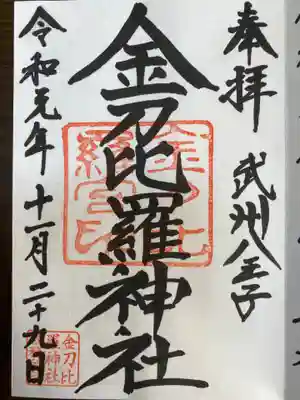 奉拝
武州八王子
金刀比羅神社
令和元年十一月二十九日
金刀比
羅神社